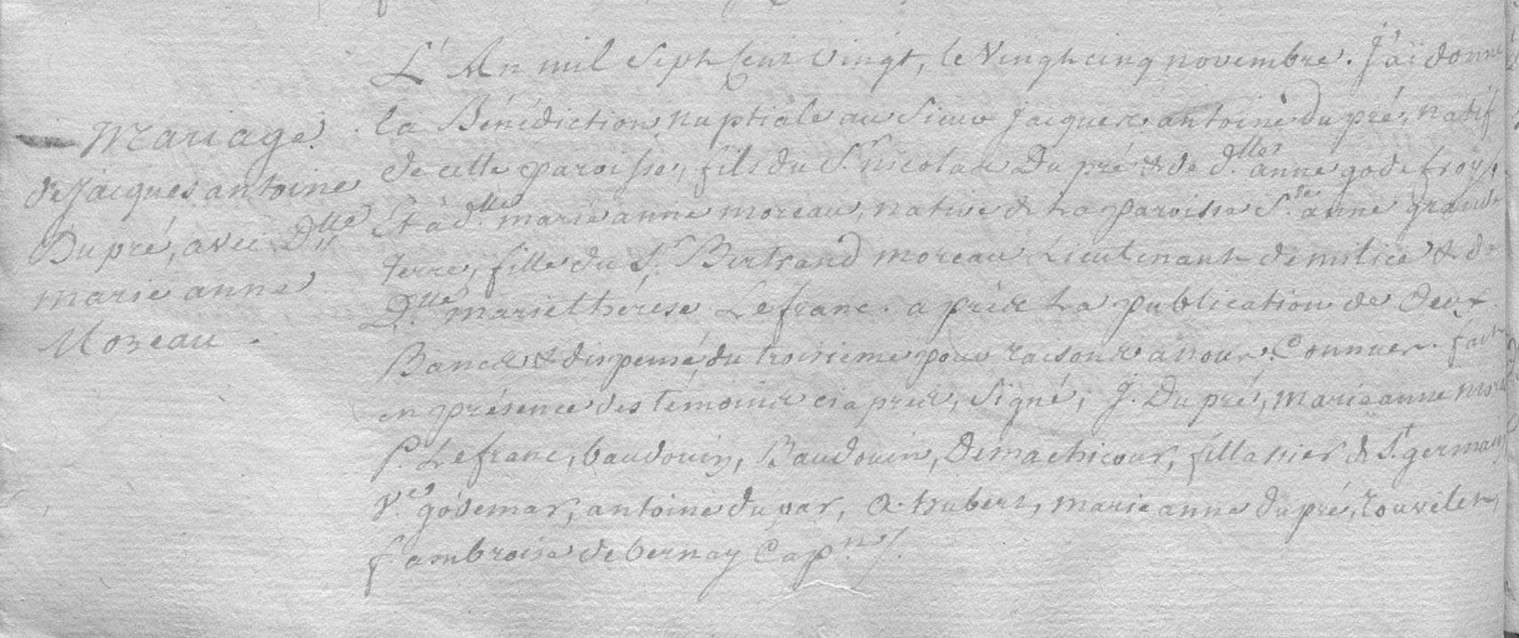 Mariage
de Jacques antoine
Dupré, avec Dlle
marie anne
Moreau.
L'An mil Sept Cent vingt, le Vingt cinq novembre. J'ai donné
la Bénédiction nuptiale au Sieur Jacques antoine du pré, natif
de cette paroisse, fils du Sr. nicolas Du pré & de dlle. anne godefroy,
Et à dlle. marie anne moreau, native de La paroisse Ste. anne grande
terre, fille du Sr. Bertrand moreau Lieutenant de milice & de
Dlle. marie therese Lefranc. après La publication de deux
Bancs & dispensé du troisieme pour raisons à nous Connues. fait
en présence des témoins ci après, Signé, J. Du pré, marie anne
P. Lefranc, baudouin, Baudouin, Demachicour, fillassier de St. germain
Ve. godemar, antoine du par, A. hubert, marie anne dupré,
f. ambroise de bernay Capn.